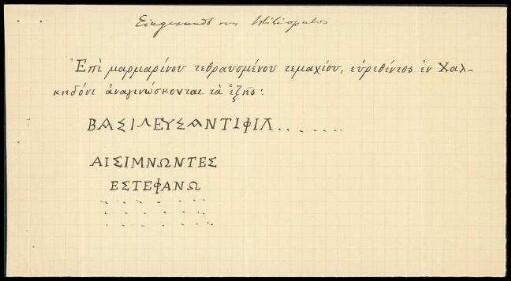 Ἐπὶ μαρμαρίνου τεθραυσμένου τεμαχίου, εὑρεθέντος ἐν Χαλ-
κηδόνι ἀναγινώσκονται τὰ ἑξῆς:
ΒΑΣΙΛΕΥΣΑΝΤΙΦΙΛ.......
ΑΙΣΙΜΝΩΝΤΕΣ
ΕΣΤΕΦΑΝΩ